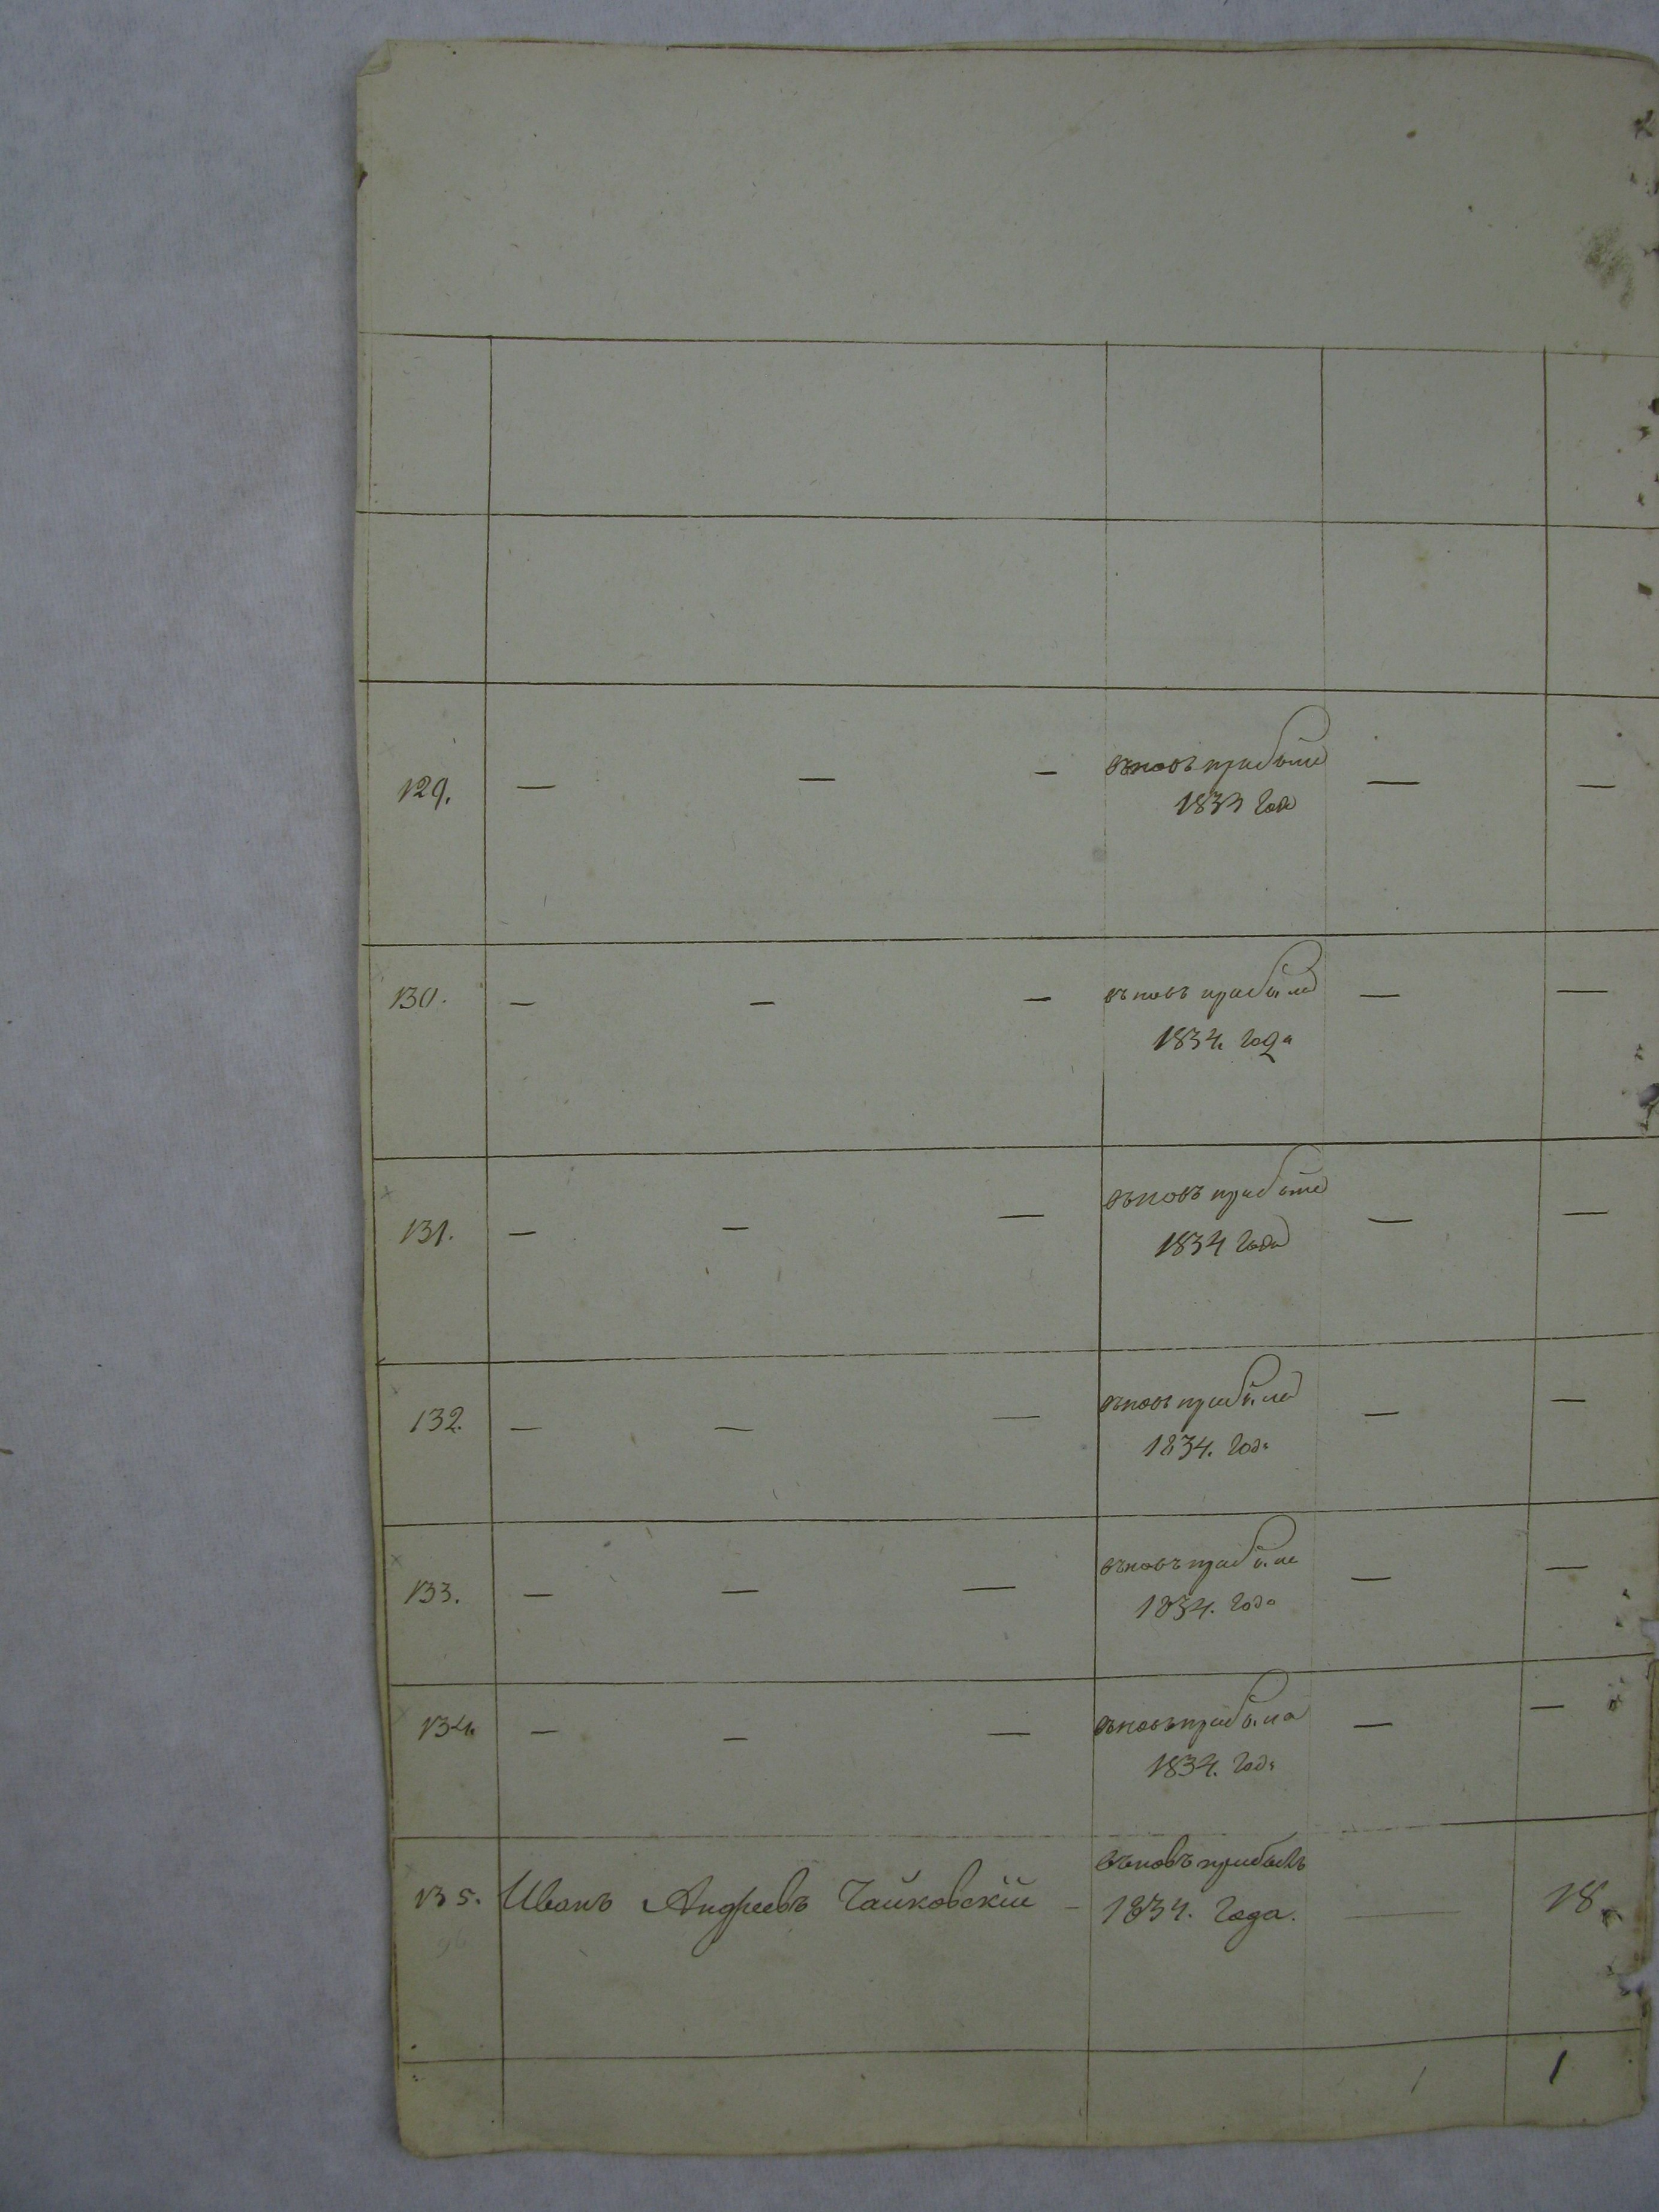 129. — — — въновь прибыла — —
1833 года
130. — — — въновь прибыла — —
1834. года
131. — — — въновь прибыла — —
1834 года
132. — — — въновь прибыла — —
1834. года
133. — — — въновь прибыла — —
1834. года
134. — — — въновь прибыла — —
1834. года
135. Иванъ Андреевъ Чайковскій — въновь прибылъ
1834. года. — 18.
1 1